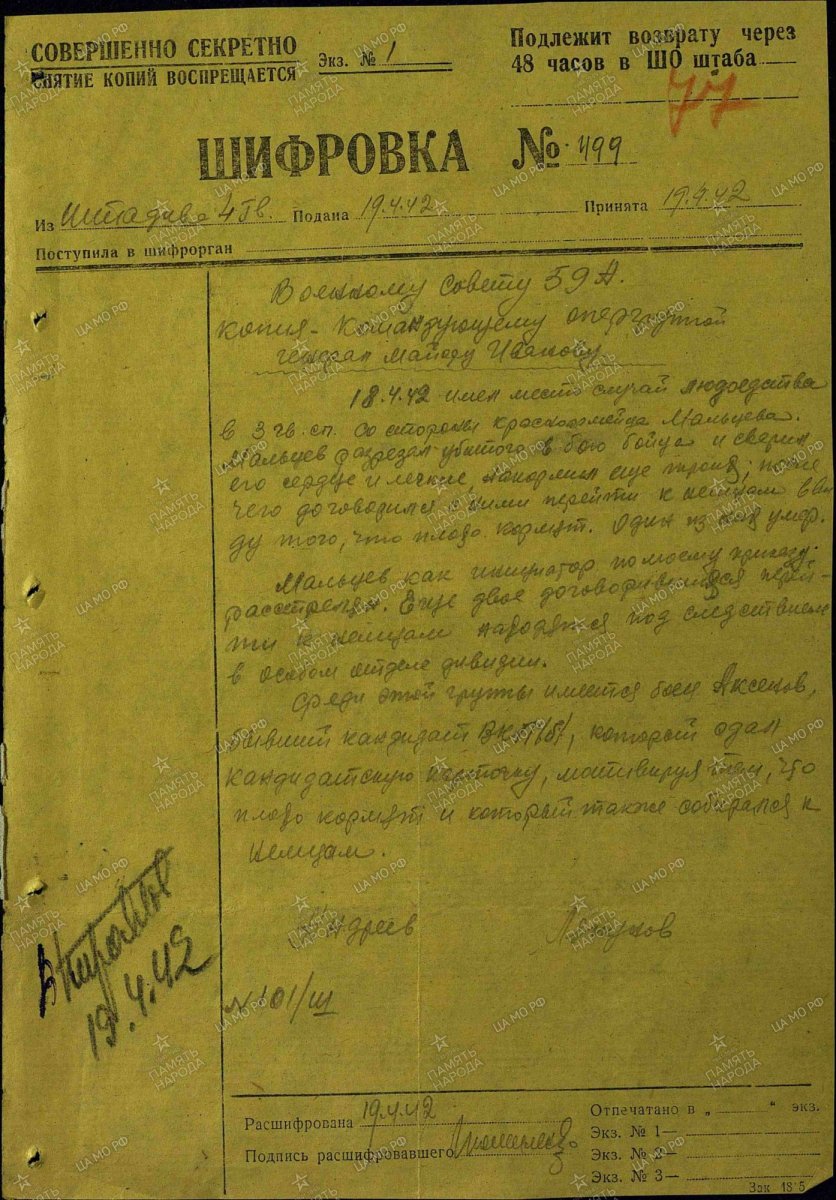 СОВЕРШЕННО СЕКРЕТНО
СНЯТИЕ КОПИЙ ВОСПРЕЩАЕТСЯ
Экз. № 1
Подлежит возврату через
48 часов в ШО штаба
77
ШИФРОВКА № 499
Из Штадива 4 Гв. Подана 19.4.42 Принята 19.4.42
Поступила в шифрорган
Военному Совету 59 А.
копия - Командующему опергруппой
генерал майору Иванову
18.4.42 имел место случай людоедства
в 3 гв. сп. со стороны красноармейца Мальцева.
Мальцев разрезал убитого в бою бойца и сварил
его сердце и легкие, накормил еще троих, после
чего договорился с ними перейти к немцам вви
ду того, что плохо кормят. Один из них умер.
Мальцев как инициатор по моему приказу
расстрелян. Еще двое договорившихся перей-
ти к немцам находятся под следствием
в особом отделе дивизии.
Среди этой группы имеется боец Аксенов,
бывший кандидат ВКП/б/, который сдал
кандидатскую карточку, мотивируя тем, что
плохо кормят и который также собирался к
немцам.
Андреев
№ 101/ш
19.4.42
Расшифрована 19.4.42
Подпись расшифровавшего
Отпечатано в „ “ экз.
Экз. № 1—
Экз. № 2—
Экз. № 3—
Зак. 1815
ПАМЯТЬ НАРОДА
ЦА МО РФ